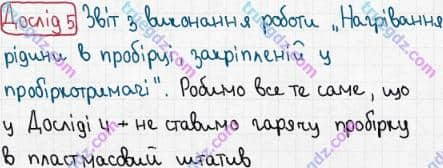 Дослід 5 Звіт з виконання роботи „Нагрівання
рідини в пробірці, закріпленій у
пробіркотримачі". Робимо все те саме, що
у Досліді 4 + не ставимо гарячу пробірку
в пластмасовий штатив